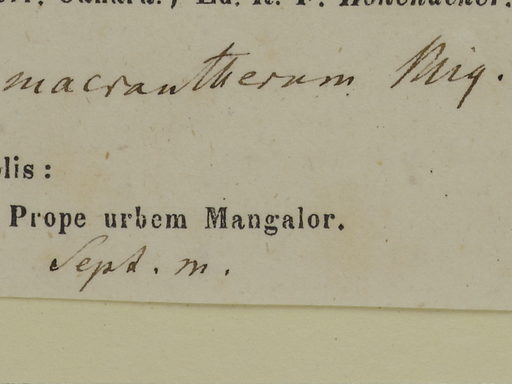 Canara., Ed. R. F. Hohenacker.
macrantherum Miq.
lis:
Prope urbem Mangalor.
Sept. m.